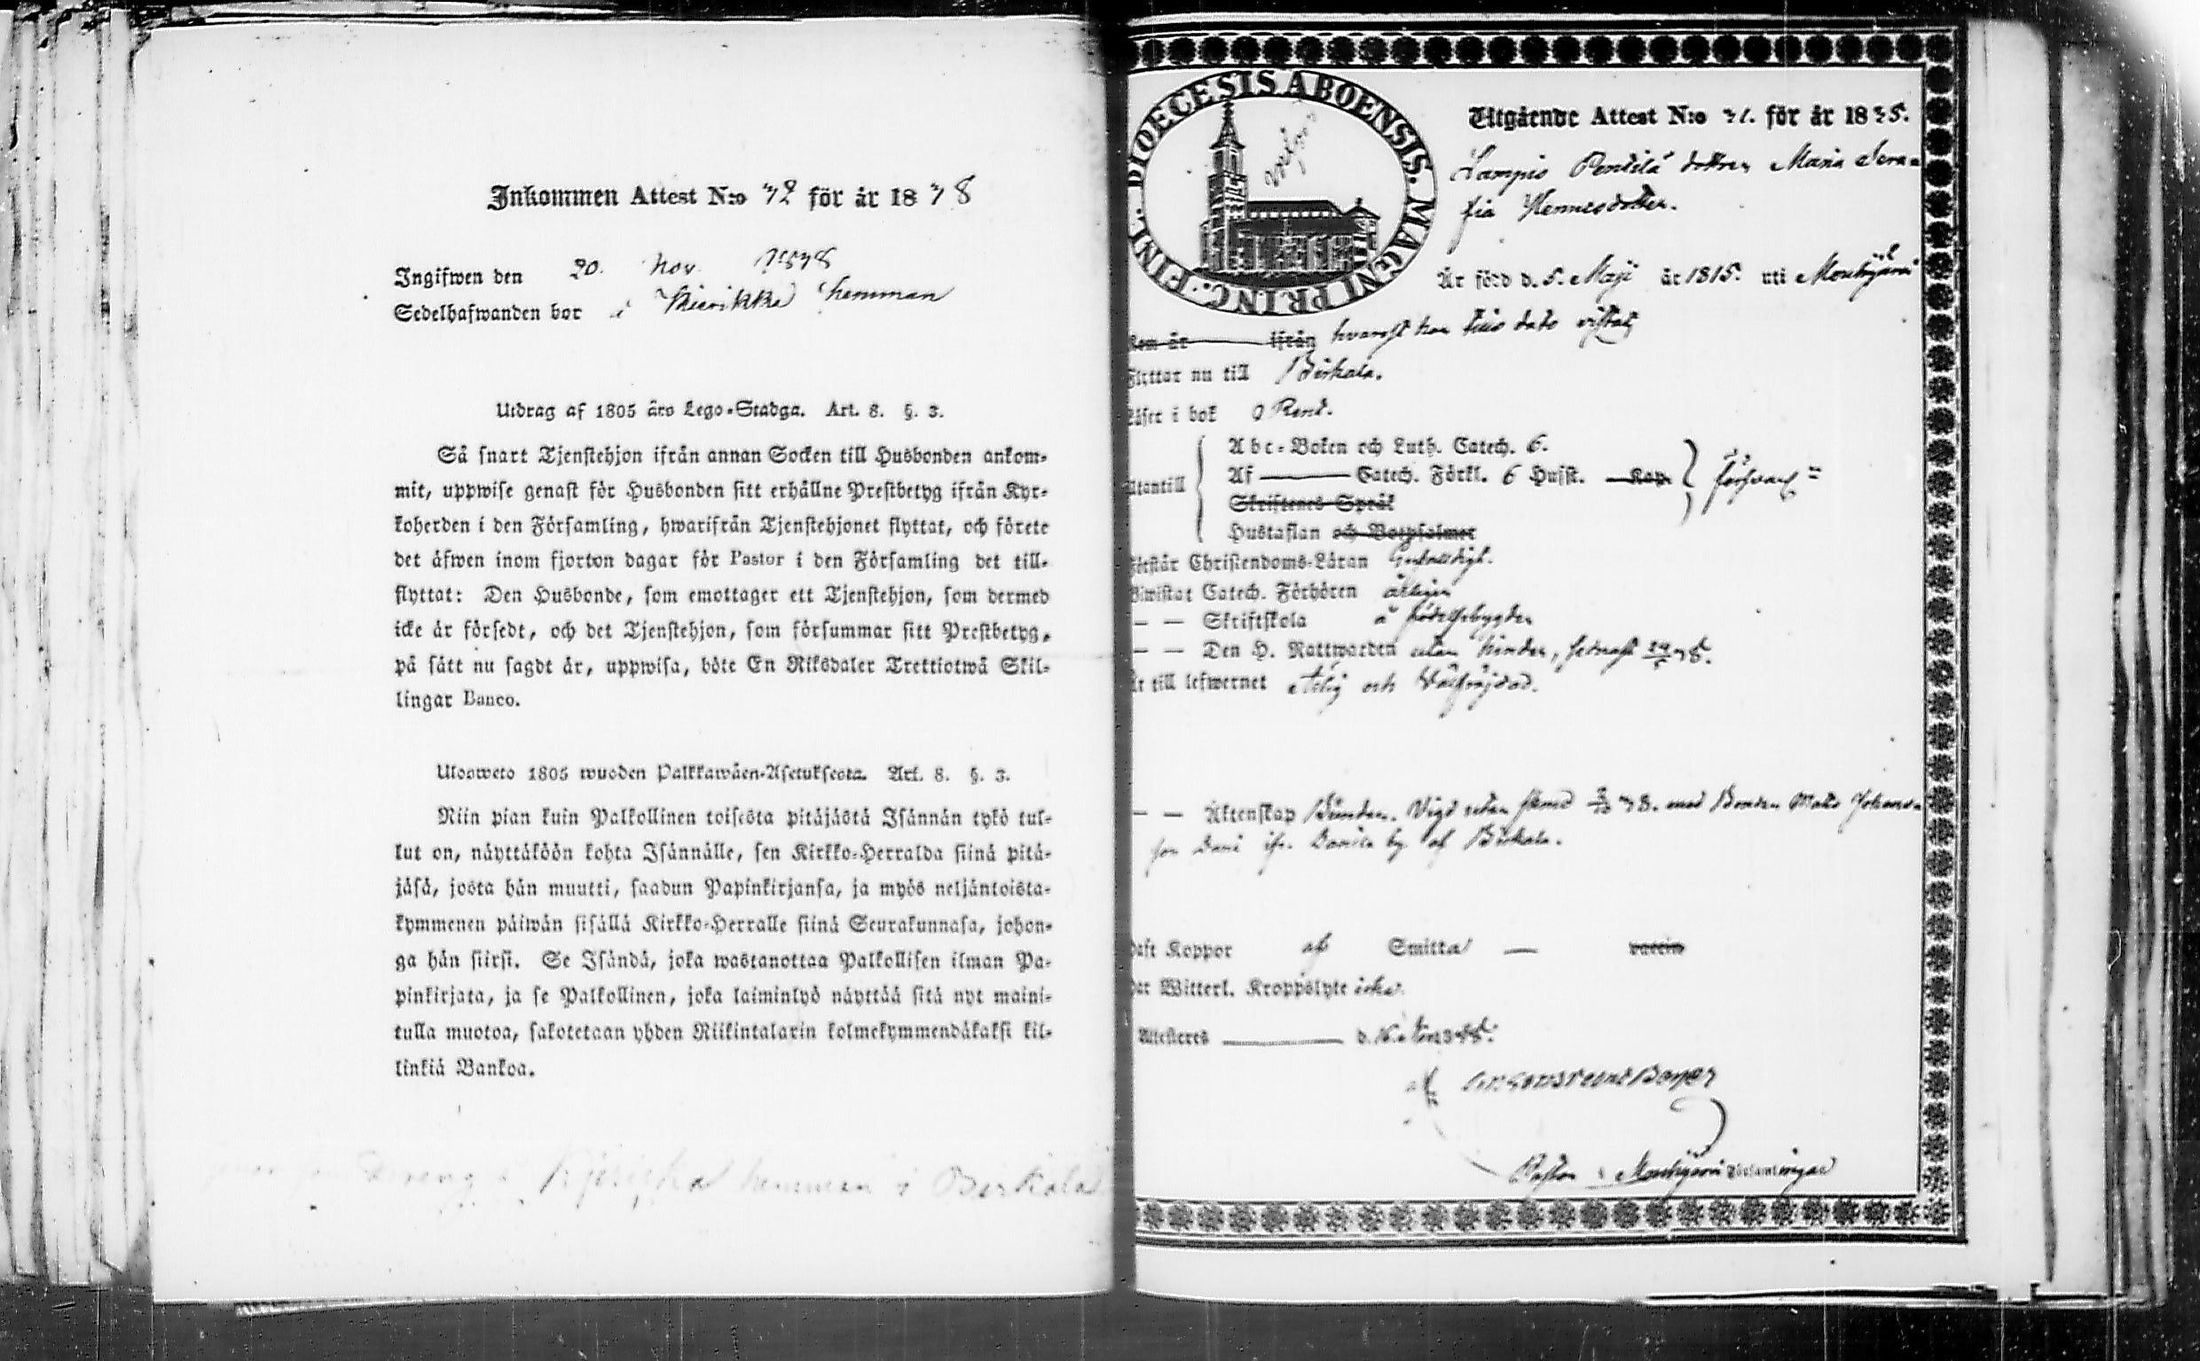 Inkommen Attest N:o 72 för år 1838
Ingifwen den 20. Nov. 1838
Sedelhafwanden bor i Kierikka hemman
Utdrag af 1805 års Lego-Stadga. Art. 8. §. 3.
Så snart Tjenstehjon ifrån annan Socken till Husbonden ankom-
mit, uppwise genast för Husbonden sitt erhållne Prestbetyg ifrån Kyr-
koherden i den Församling, hwarifrån Tjenstehjonet flyttat, och förete
det äfwen inom fjorton dagar för Pastor i den Församling det till-
flyttat: Den Husbonde, som emottager ett Tjenstehjon, som dermed
icke är försedt, och det Tjenstehjon, som försummar sitt Prestbetyg,
på sätt nu sagdt är, uppwisa, böte En Riksdaler Trettiotwå Skil-
lingar Banco.
Ulosweto 1805 wuoden Palkkawäen-Asetuksesta. Art. 8. §. 3.
Niin pian kuin Palkollinen toisesta pitäjästä Isännän tykö tul-
lut on, näyttäköön kohta Isännälle, sen Kirkko-Herralda siinä pitä-
jäsä, josta hän muutti, saadun Papinkirjansa, ja myös neljäntoista-
kymmenen päiwän sisällä Kirkko-Herralle siinä Seurakunnasa, johon-
ga hän siirsi. Se Isändä, joka wastanottaa Palkollisen ilman Pa-
pinkirjata, ja se Palkollinen, joka laiminlyö näyttää sitä nyt maini-
tulla muotoa, sakotetaan yhden Riikintalarin kolmekymmendäkaksi kil-
linkiä Bankoa.
Kjerikka hemman i Birkala
DIOECESIS ABOENSIS. MAGNI PRINC. FINL.
Utgående Attest N:o 71. för år 1838.
Lampis Penttilä dottren Maria Sera-
fia Hennesdotter.
Är född d. 5. Maji år 1815. uti Mouhijärvi
Kom är ifrån hvarest hon tills dato vistats
Flyttar nu till Birkala.
Läser i bok
Utantill
Abc-Boken och Luth. Catech. 6.
Af Catech. Förkl. 6 Hufst. Kap.
Skriftenes Språk
Hustaflan och Botpsalmer
försvarl-
Förstår Christendoms-Läran
Biwistat Catech. Förhören årligen
— — Skriftskola å födelsebygden
— — Den H. Nattwarden utan hinder, senast
Är till lefwernet ärlig och välfräjdad.
— — Äktenskap Bunden. Vigd utan med Bonden Mats Johans-
son ifr. by af Birkala.
Haft Koppor af Smitta — vaccin
Har Witterl. Kroppslyte icke.
Attesteres d. 16. Nov. 1838.
af
Pastor i Mouhijärvi Församlingar